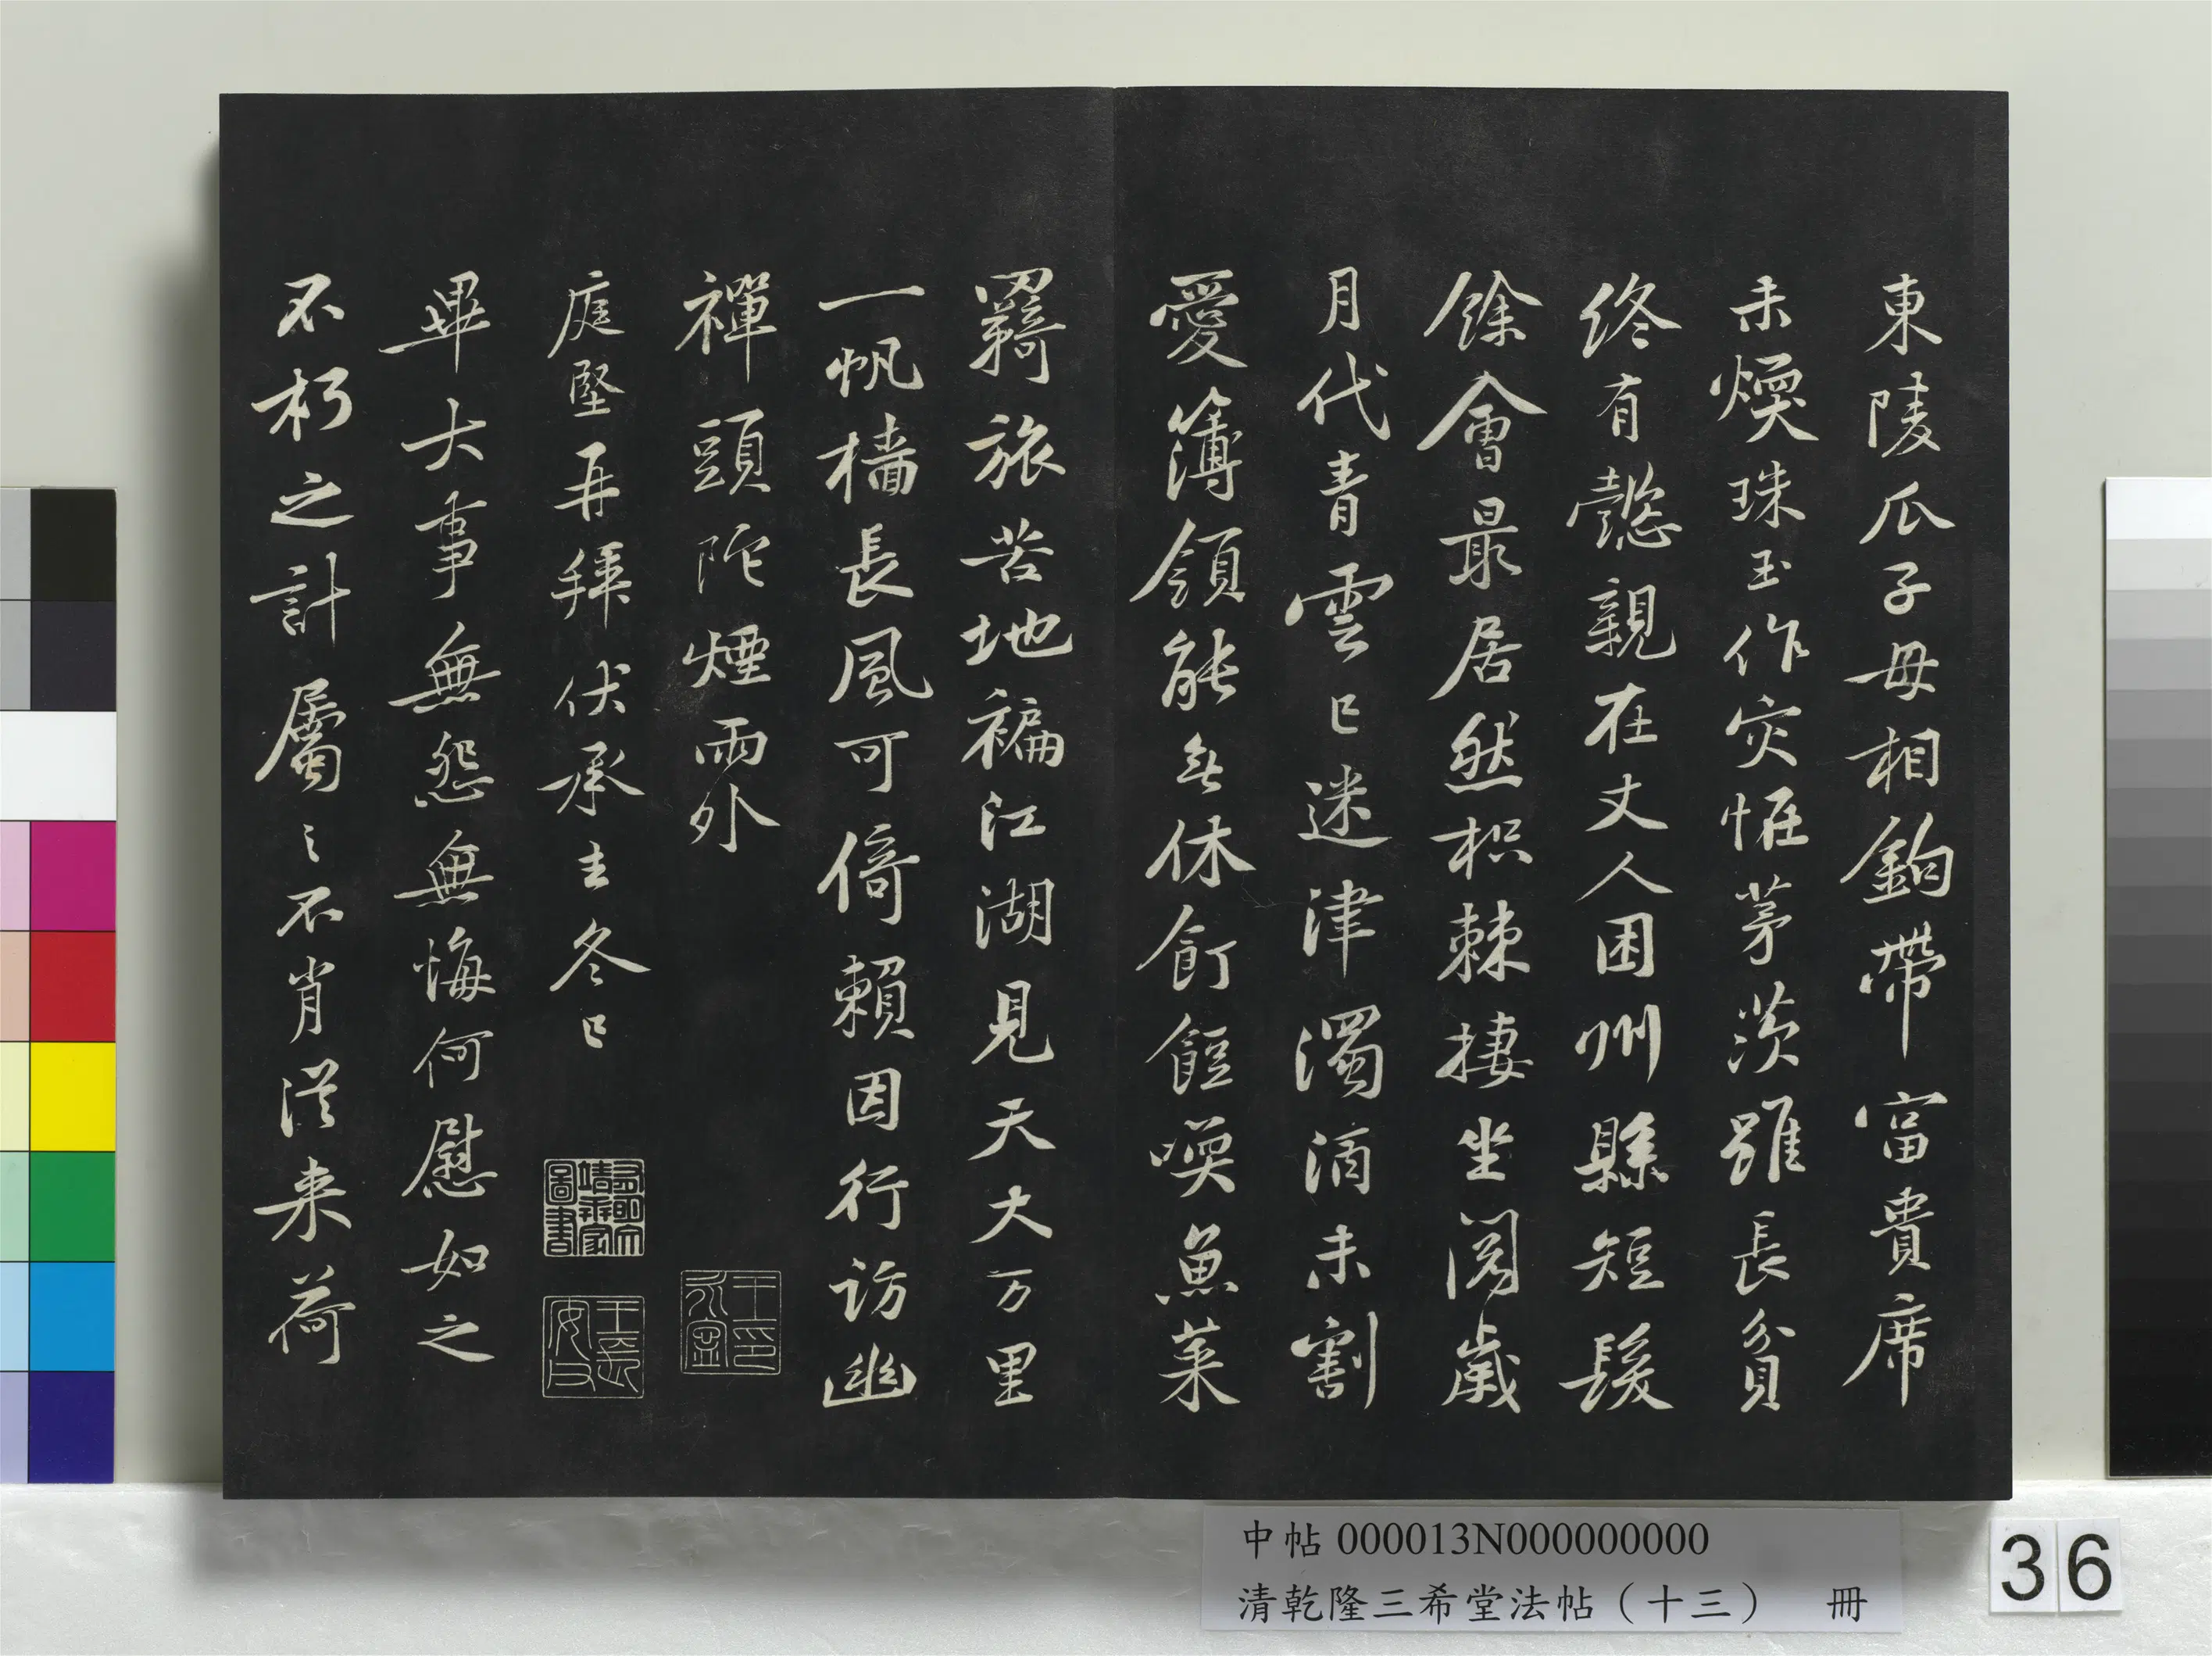 東陵瓜子母相鉤帶富貴席
未煗珠玉作灾惟茅茨雖長貧
終有懿親在丈人困州縣短髮
餘會最居然枳棘棲坐閲歲
月代青雲已迷津濁酒未割
愛簿領能無休飣餖喚魚菜
羈旅苦地褊江湖見天大万里
一帆檣長風可倚賴因行訪幽
禪頭陀煙雨外
庭堅再拜伏承主冬已
畢大事無怨無悔何慰如之
不朽之計屬之不肖從来荷
中帖 000013N000000000
清乾隆三希堂法帖（十三） 冊
36